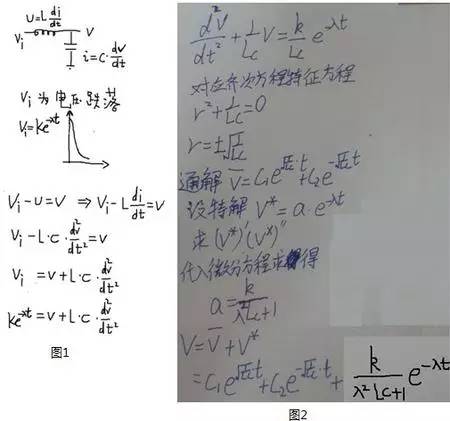 u=L di/dt
Vi
V
i=C·dv/dt
Vi 为电压跌落
Vi=ke^-λt
Vi-u=V ⇒ Vi-L di/dt=V
Vi-L·C·d²v/dt²=v
Vi =v+L·C·d²v/dt²
ke^-λt=v+L·C·d²v/dt²
图1
d²V/dt²+1/LC V=k/LC e^-λt
对应齐次方程特征方程
r²+1/LC=0
r=±√1/LC
通解 V̄=C₁e^√1/LC·t+C₂e^-√1/LC·t
设特解 V*=a·e^-λt
求(V*)'(V*)''
代入微分方程求得
a=k/λ²LC+1
V=V̄+V*
=C₁e^√1/LC t+C₂e^-√1/LC·t+ k/λ²LC+1 e^-λt
图2